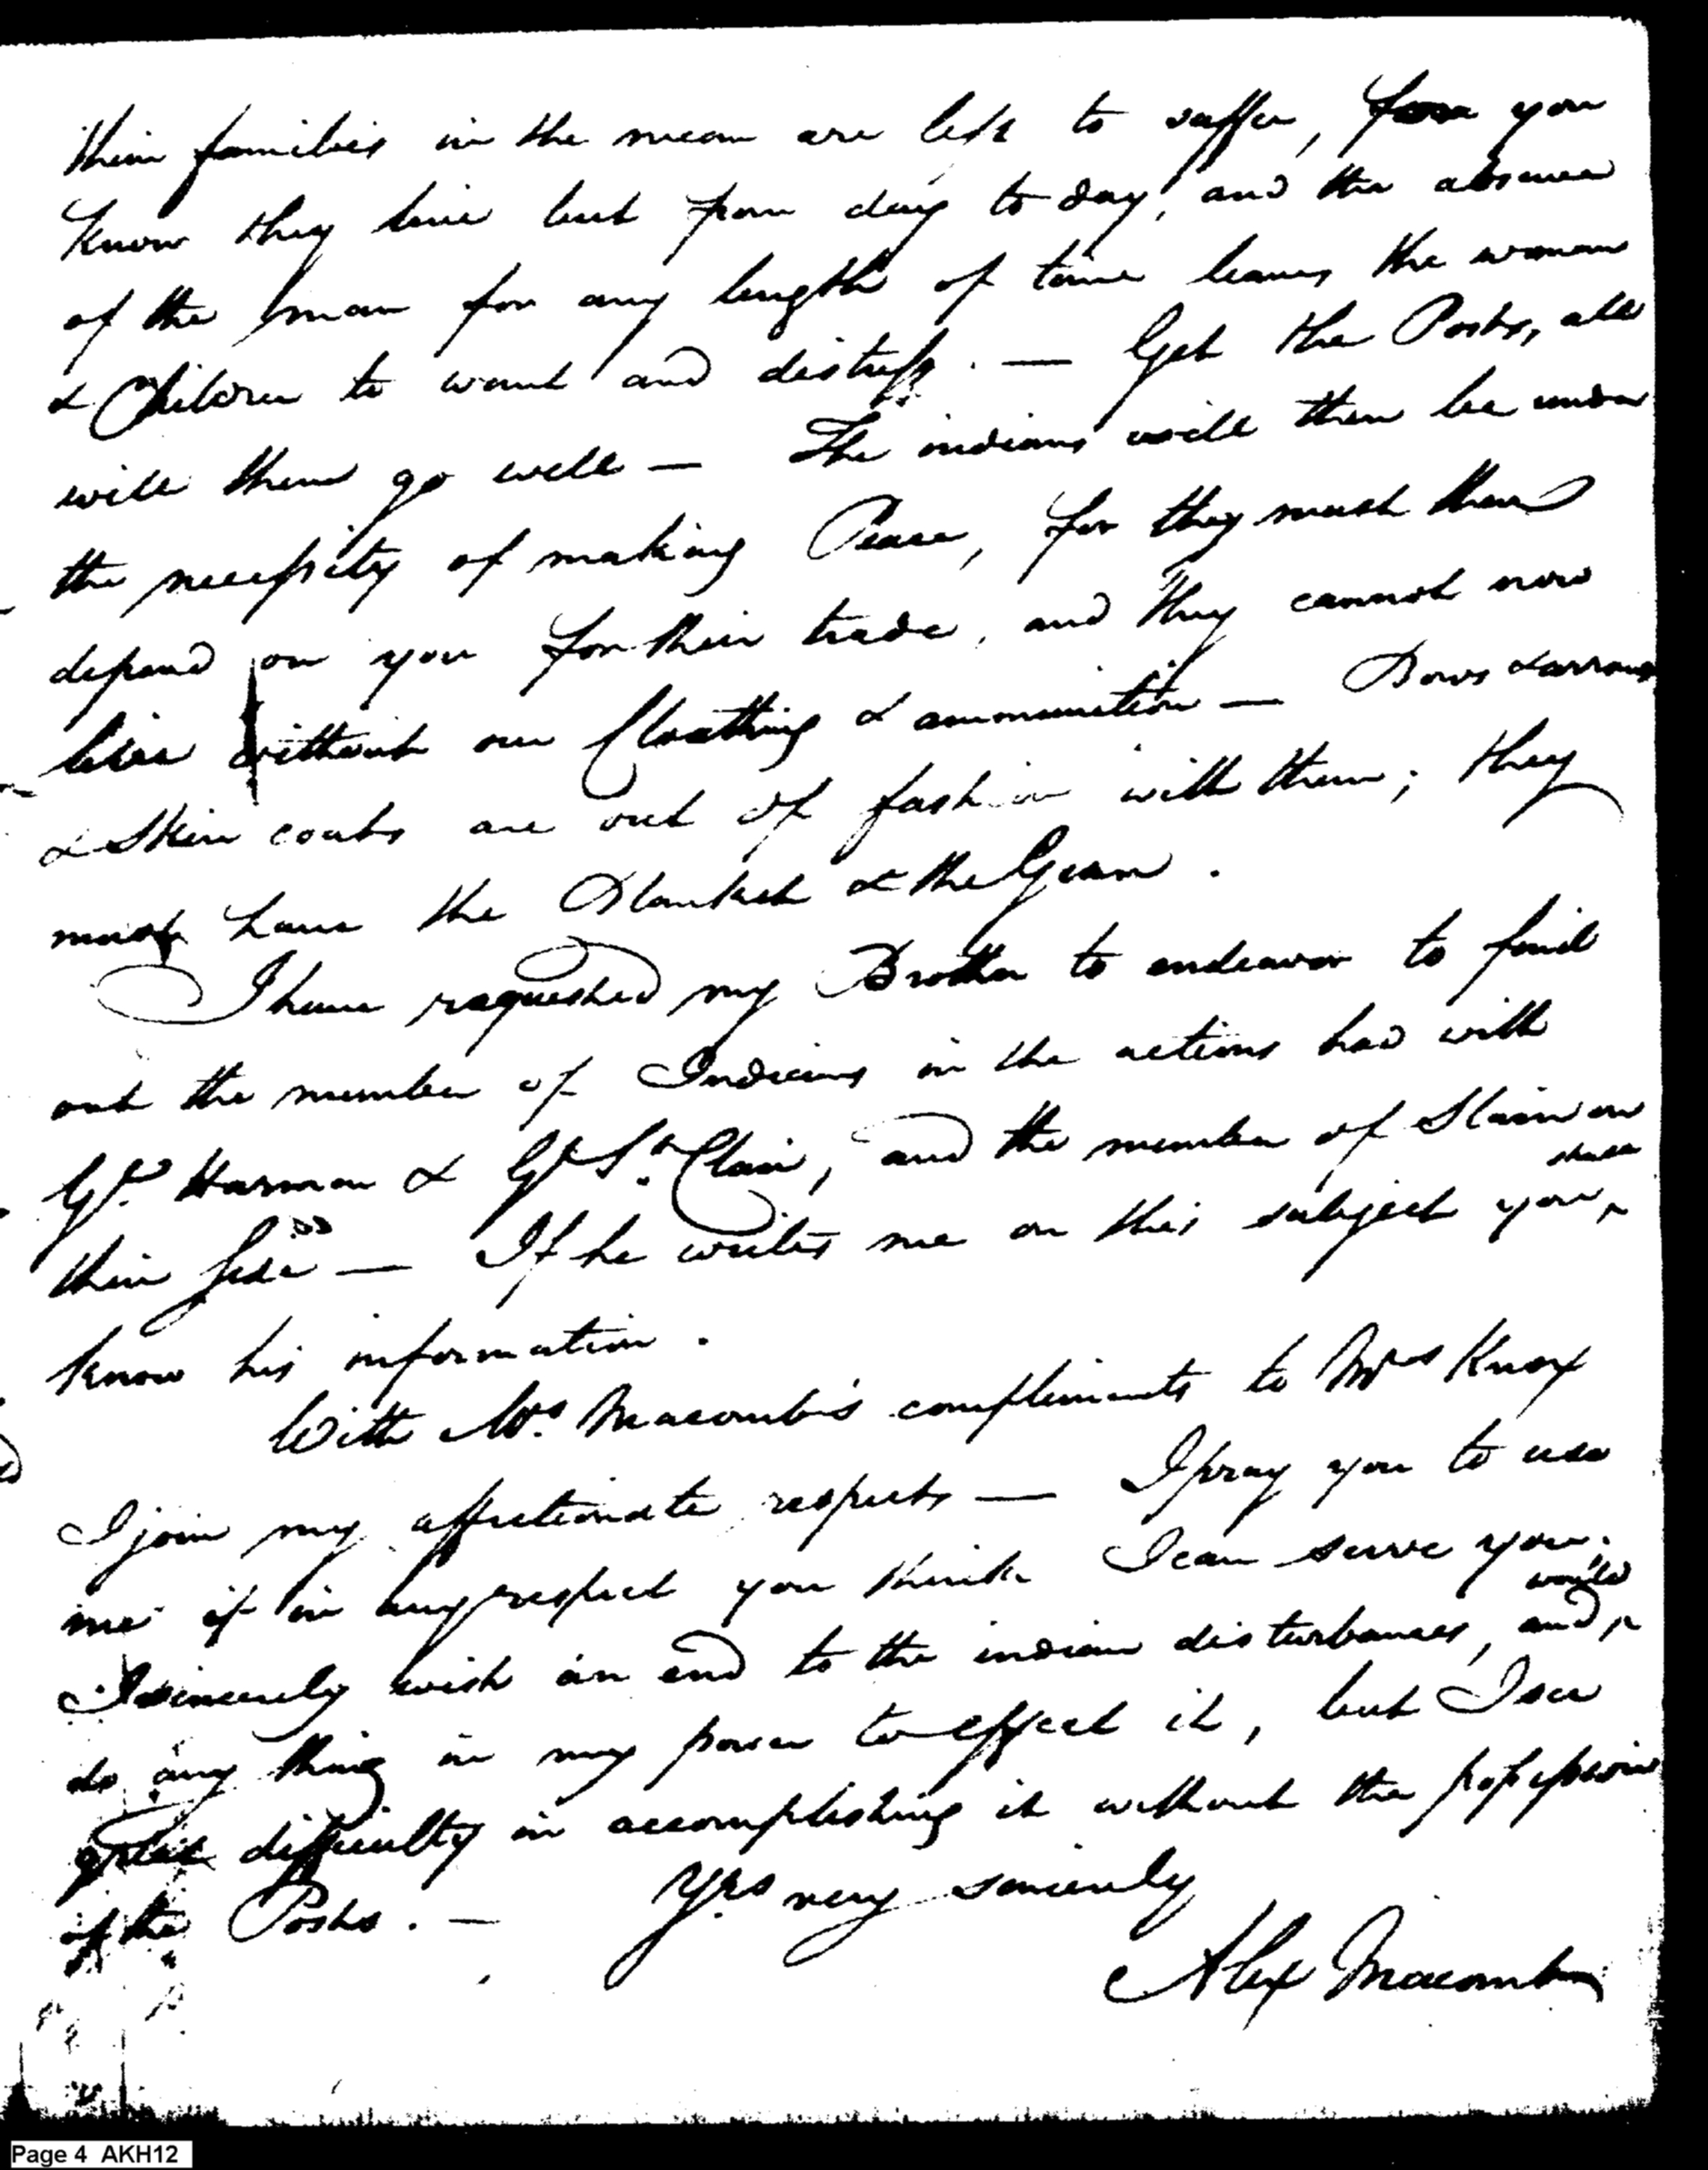 their families in the mean are left to suffer, for you
know they live but from day to day, and the absence
of the man for any length of time leaves the woman
& Children to want and distress. — Get the Posts, all
will then go well — The indians will then be under
the necessity of making Peace, for they must then
depend on you for their trade, and they cannot now
live without our Cloathing & ammunition — Bows & arrows
& Skin coats are out of fashion with them; they
must have the Blanket & the Gun.
I have requested my Brother to endeavor to find
out the number of Indians in the actions had with
Gl. Harmar & Gl. St. Clair, and the number of Slain on
shall
their side — If he writes me on this subject you ^
know his information.
With Mrs. Macomb's compliments to Mrs Knox
I join my affectionate respects — I pray you to use
me if in any respect you think I can serve you.
would
I sincerely wish an end to the indian disturbances, and ^
do any thing in my power to effect it, but I see
great difficulty in accomplishing it without the possession
of the Posts. — Yrs very sincerely
Alex Macomb
Page 4 AKH12